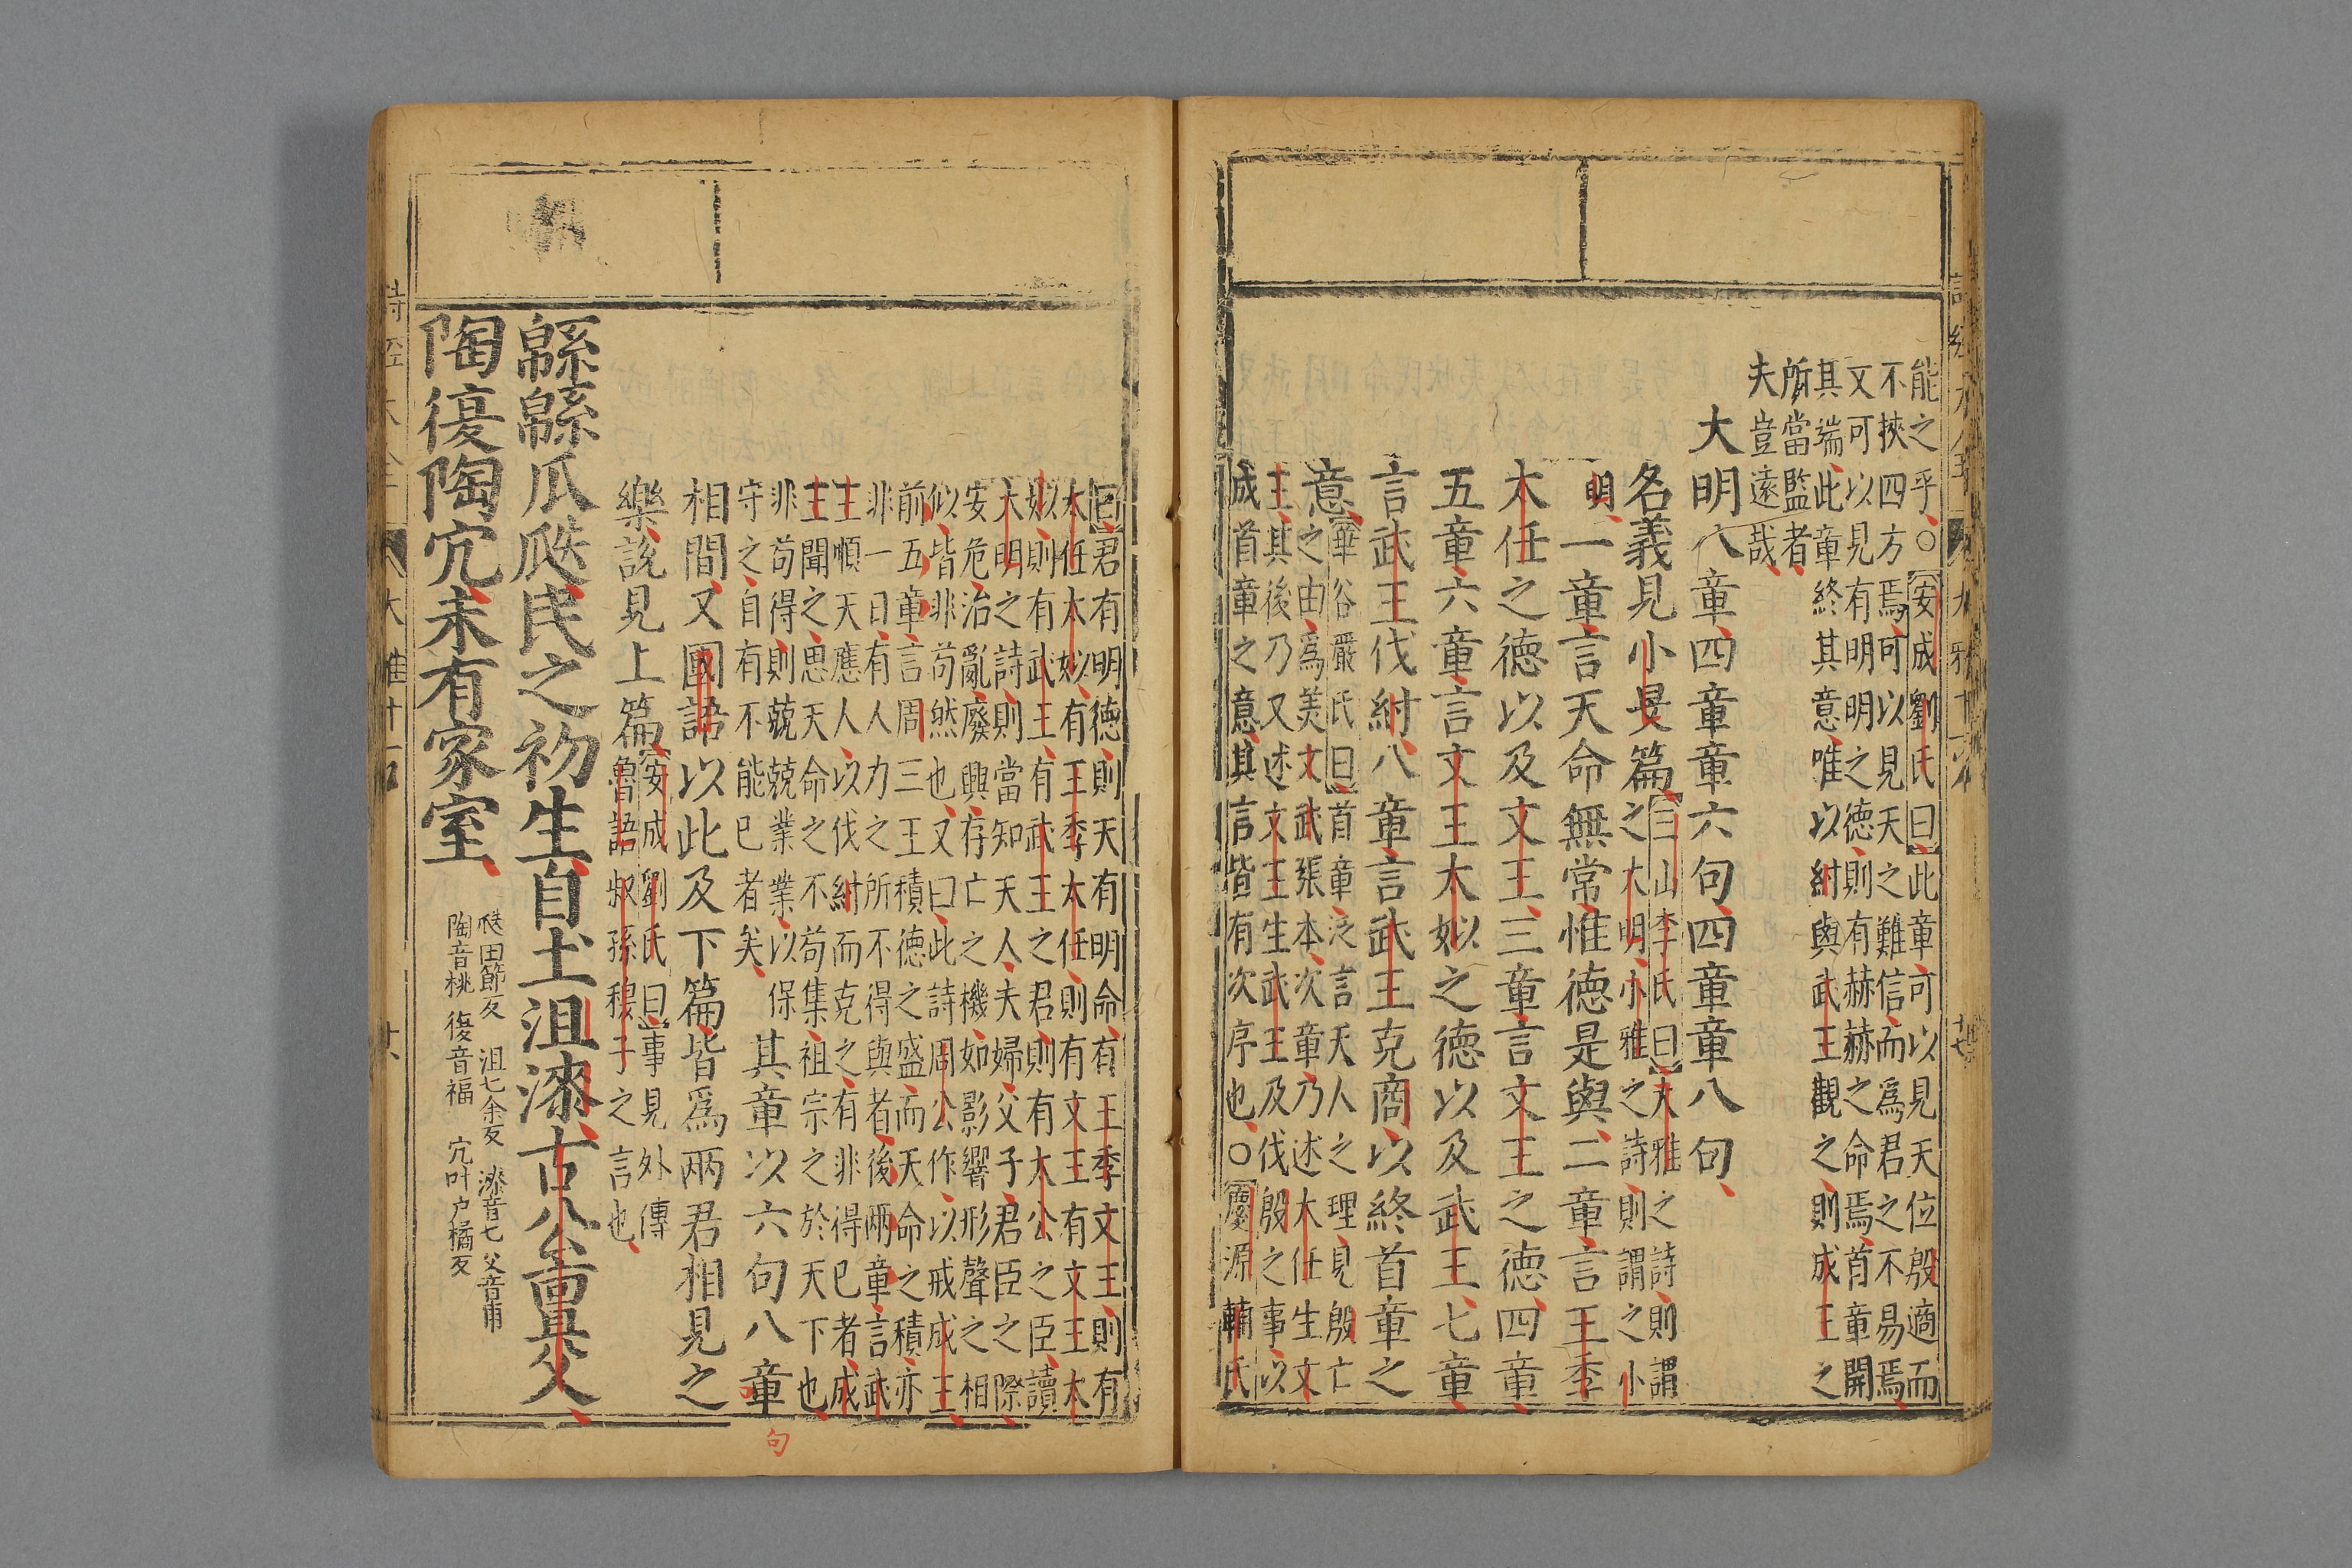 能之乎○安成劉氏曰此章可以見天位殷適而
不挾四方焉可以見天之難信而為君之不易焉
文可以見有明明之德則有赫赫之命焉首章開
其端此章終其意唯以紂與武王觀之則成王之
所當監者
夫豈遠哉
大明八章四章章六句四章章八句
名義見小旻篇三山李氏曰大雅之詩則謂
之大明小雅之詩則謂之小
明一章言天命無常惟德是與二章言王季
太任之德以及文王三章言文王之德四章
五章六章言文王太姒之德以及武王七章
言武王伐紂八章言武王克商以終首章之
意華谷嚴氏曰首章泛言天人之理見殷亡
之由為美文武張本次章乃述大任生文
王其後乃又述文王生武王及伐殷之事以
成首章之意其言皆有次序也○慶源輔氏
曰君有明德則天有明命有王季文王則有
太任太姒有王季太任則有文王有文王太
姒則有武王有武王之君則有太公之臣讀
大明之詩則當知天人夫婦父子君臣之際
安危治亂廢興存亡之機如影響形聲之相
似皆非苟然也又曰此詩周公作以戒成王
前五章言周三王積德之盛而天命之積亦
非一日有人力之所不得與者後兩章言武
王順天應人以伐紂而克之有非得已者成
王聞之思天命之不苟集祖宗之於天下也
非苟得則兢兢業業以保
守之自有不能已者矣
其章以六句八章
句
相間又國語以此及下篇皆為兩君相見之
樂說見上篇安成劉氏曰事見外傳
魯語叔孫穆子之言也
緜緜瓜瓞民之初生自土沮漆古公亶父
陶復陶穴未有家室瓞田節反 沮七余反 漆音七 父音甫
陶音桃 復音福 穴叶户橘反